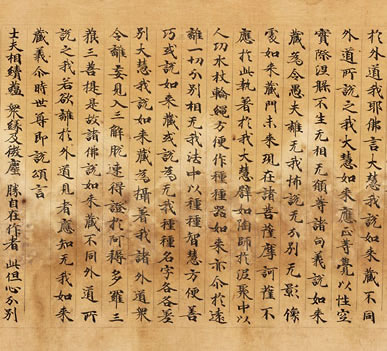 於外道我耶佛言大慧我說如来藏不同
外道所說之我大慧如来應正等覺以性空
實際涅槃不生无相无願等諸句義說如来
藏為令愚夫離无我怖說无分別无影像
處如来藏門未来現在諸菩薩摩訶薩不
應於此執著於我大慧辟如陶師於泥聚中以
人功水杖輪繩方便作種種器如来亦介於遠
離一切分別相无我法中以種種智慧方便善
巧或說如来藏或說為无我種種名字各各差
別大慧我說如来藏為攝著我諸外道所
令離妄見入三解脫速得證於阿耨多羅三
藐三菩提是故諸佛說如来藏不同外道所
說之我若欲離於外道見者應知无我如来
藏義介時世尊即說頌言
士夫相續蘊 衆緣及微塵 勝自在作者 此但心分別